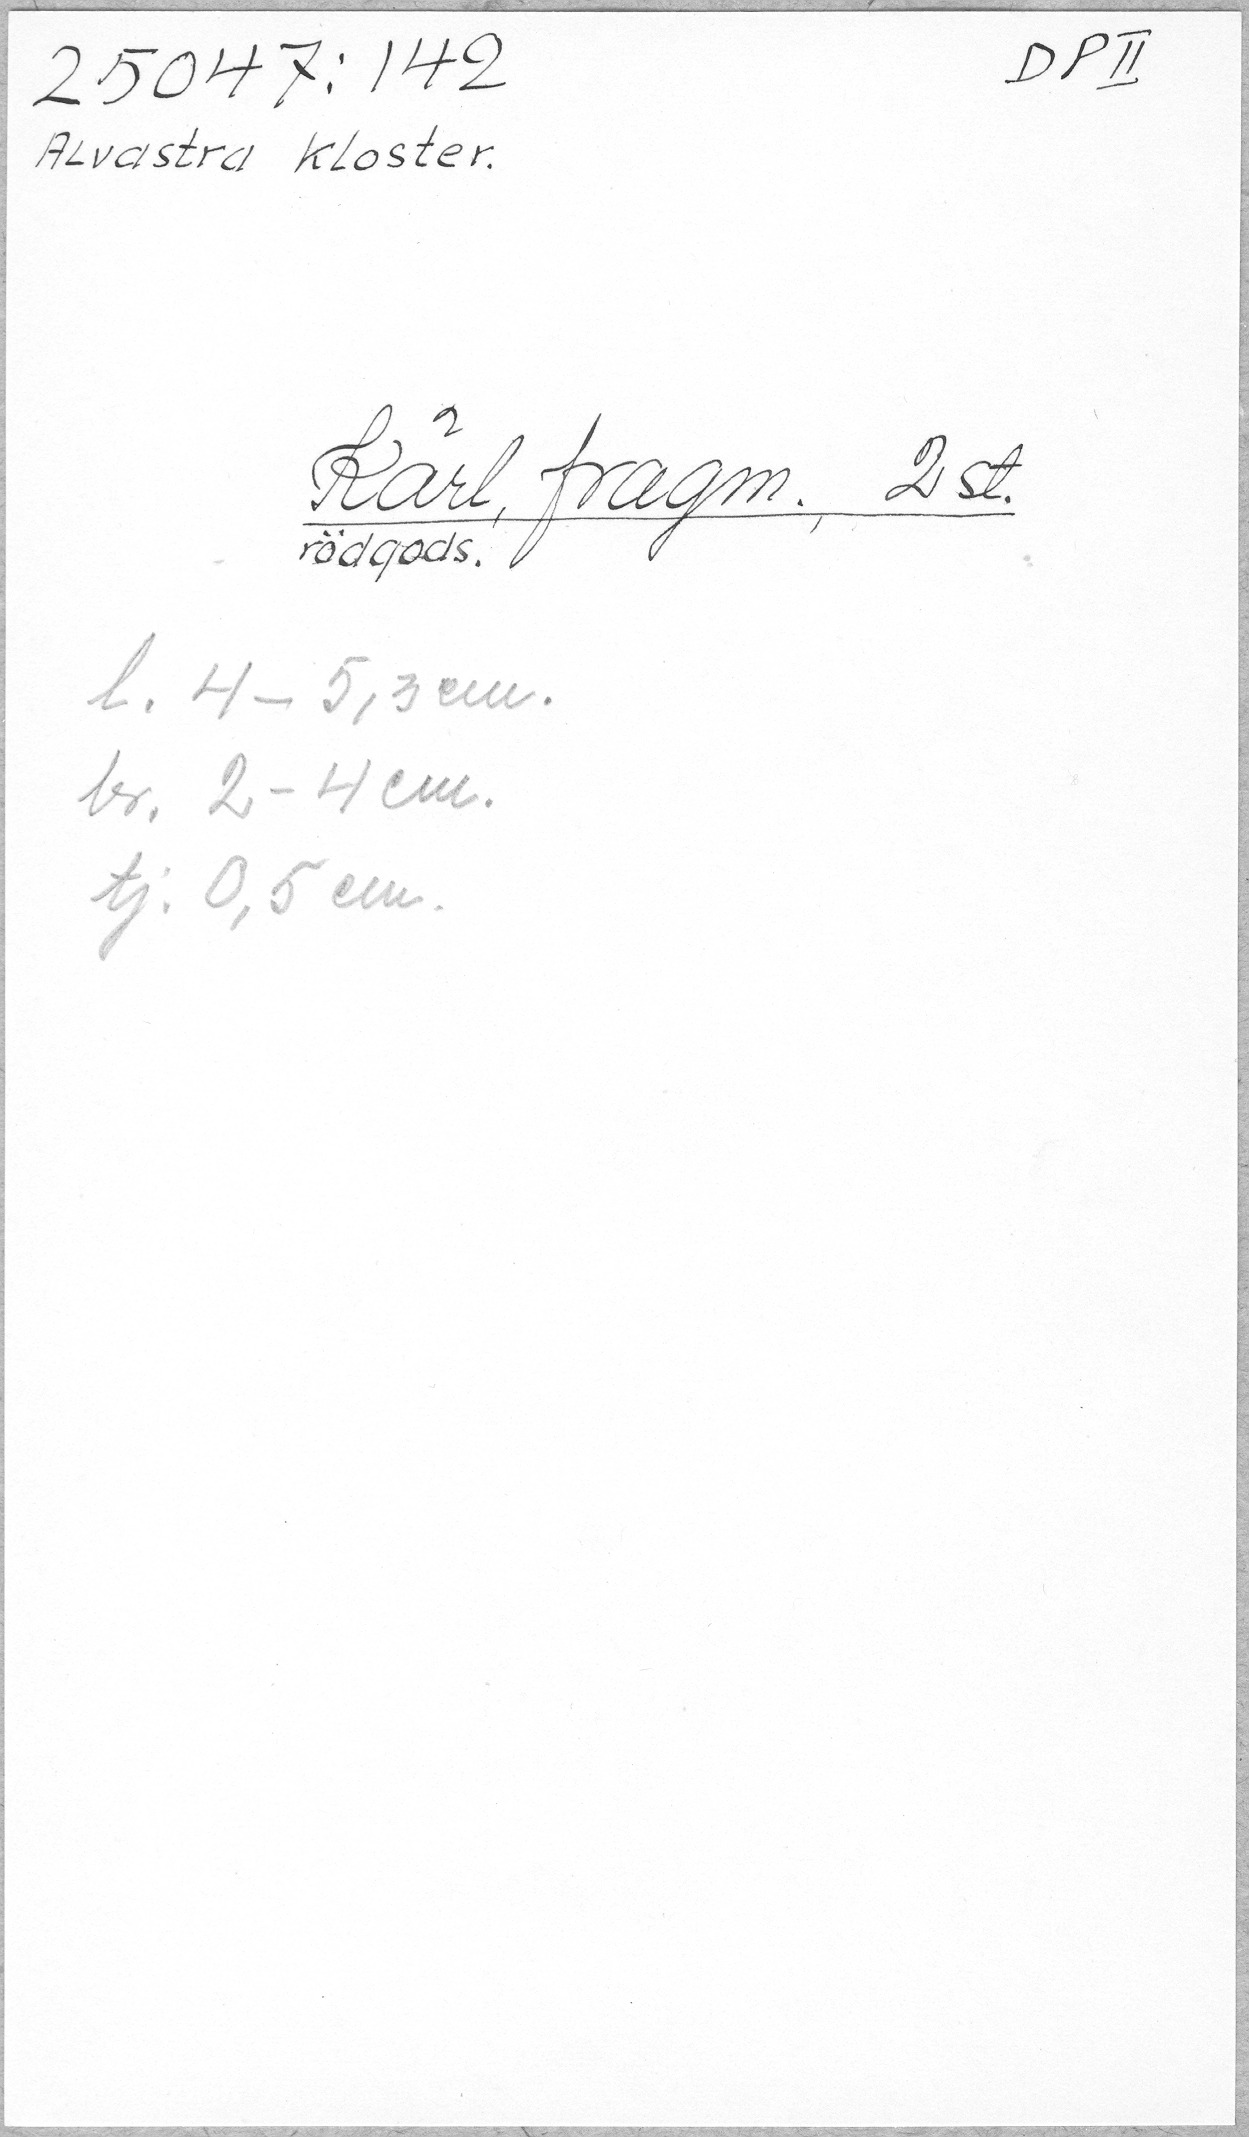 25047:142
DP II
Alvastra kloster.
Kärl, fragm., 2 st.
rödgods.
l. 4 - 5,3 cm.
br. 2 - 4 cm.
tj. 0,5 cm.